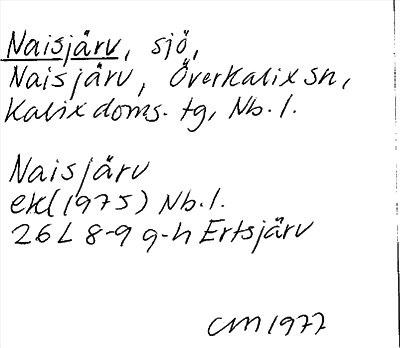 Naisjärv, sjö,
Naisjärv, Överkalix sn,
Kalix doms. tg, Nb.l.
Naisjärv
ek(1975) Nb.l.
26L 8-9 g-h Ertsjärv
CM 1977